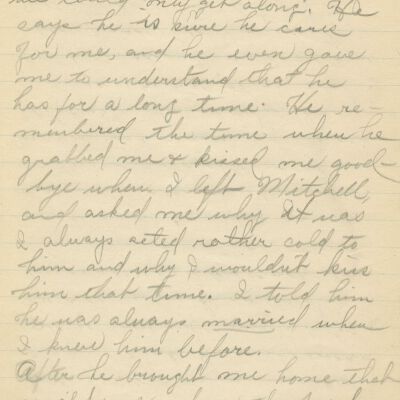 we could only get along. He
says he is sure he cares
for me, and he even gave
me to understand that he
has for a long time. He re-
membered the time when he
grabbed me & kissed me good-
bye when I left Mitchell,
and asked me why it was
I always acted rather cold to
him and why I wouldn't kiss
him that time. I told him
he was always married when
I knew him before.
After he brought me home that